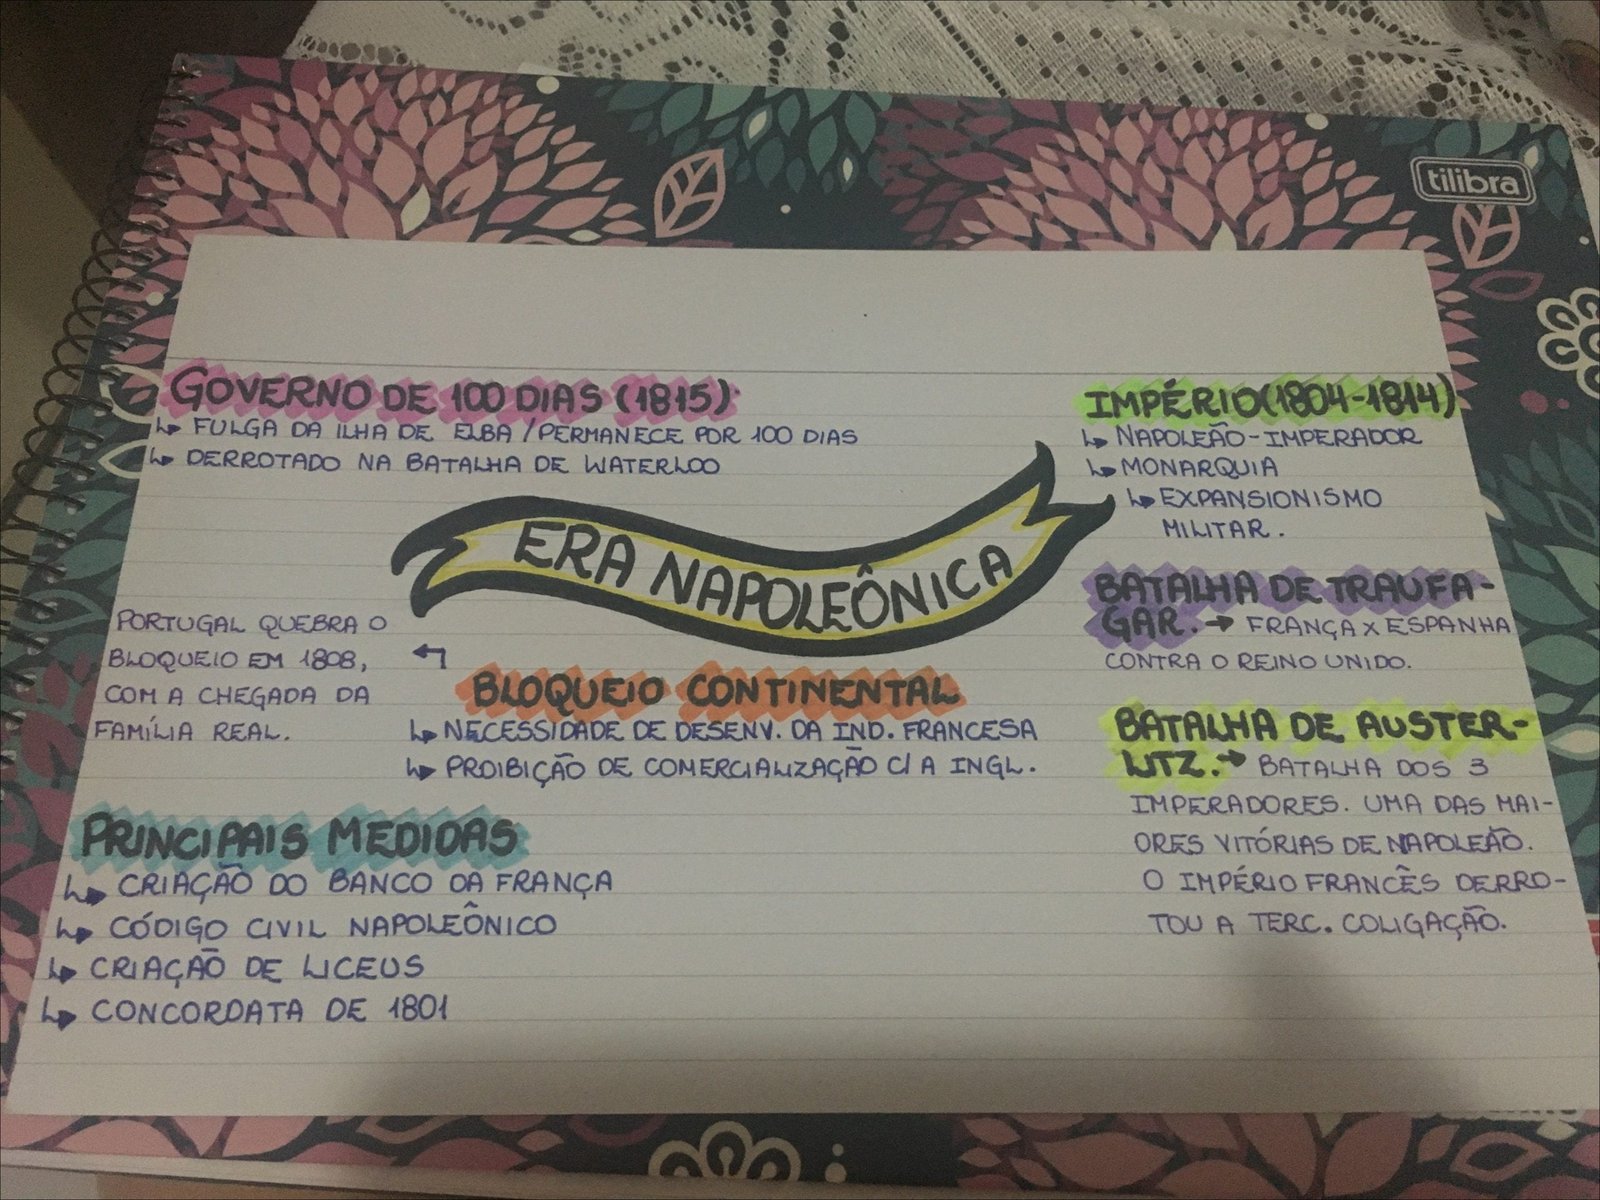 tilibra
GOVERNO DE 100 DIAS (1815)
FULGA DA ILHA DE ELBA / PERMANECE POR 100 DIAS
DERROTADO NA BATALHA DE WATERLOO
ERA NAPOLEÔNICA
IMPÉRIO (1804-1814)
NAPOLEÃO-IMPERADOR
MONARQUIA
EXPANSIONISMO
MILITAR.
BATALHA DE TRAUFA-
GAR. → FRANÇA X ESPANHA
CONTRA O REINO UNIDO.
BATALHA DE AUSTER-
LITZ. → BATALHA DOS 3
IMPERADORES. UMA DAS MAI-
ORES VITÓRIAS DE NAPOLEÃO.
O IMPÉRIO FRANCÊS DERRO-
TOU A TERC. COLIGAÇÃO.
PORTUGAL QUEBRA O
BLOQUEIO EM 1808,
COM A CHEGADA DA
FAMÍLIA REAL.
BLOQUEIO CONTINENTAL
NECESSIDADE DE DESENV. DA IND. FRANCESA
PROIBIÇÃO DE COMERCIALIZAÇÃO C/ A INGL.
PRINCIPAIS MEDIDAS
CRIAÇÃO DO BANCO DA FRANÇA
CÓDIGO CIVIL NAPOLEÔNICO
CRIAÇÃO DE LICEUS
CONCORDATA DE 1801